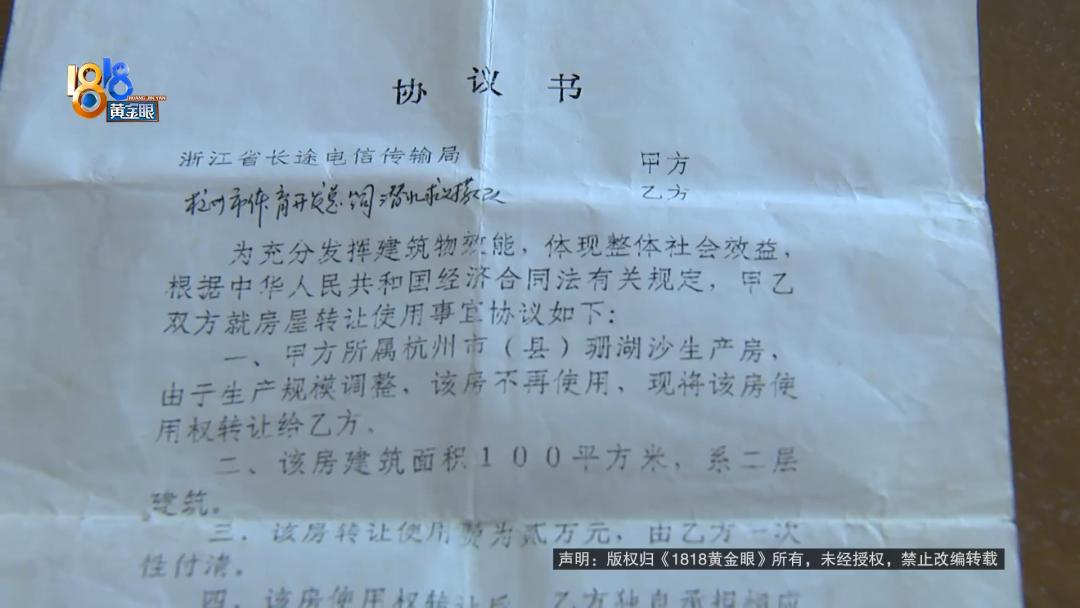 1818
HUANG JIN YAN
黄金眼
协议书
浙江省长途电信传输局 甲方
杭州市体育开发总公司潜水救捞 乙方
为充分发挥建筑物效能，体现整体社会效益，
根据中华人民共和国经济合同法有关规定，甲乙
双方就房屋转让使用事宜协议如下：
一、甲方所属杭州市（县）珊湖沙生产房，
由于生产规模调整，该房不再使用、现将该房使
用权转让给乙方、
二、该房建筑面积１００平方米，系二层
建筑。
三、该房转让使用费为贰万元，由乙方一次
性付清。
四、该房使用权转让后，乙方独自承担相应
声明：版权归《1818黄金眼》所有，未经授权，禁止改编转载